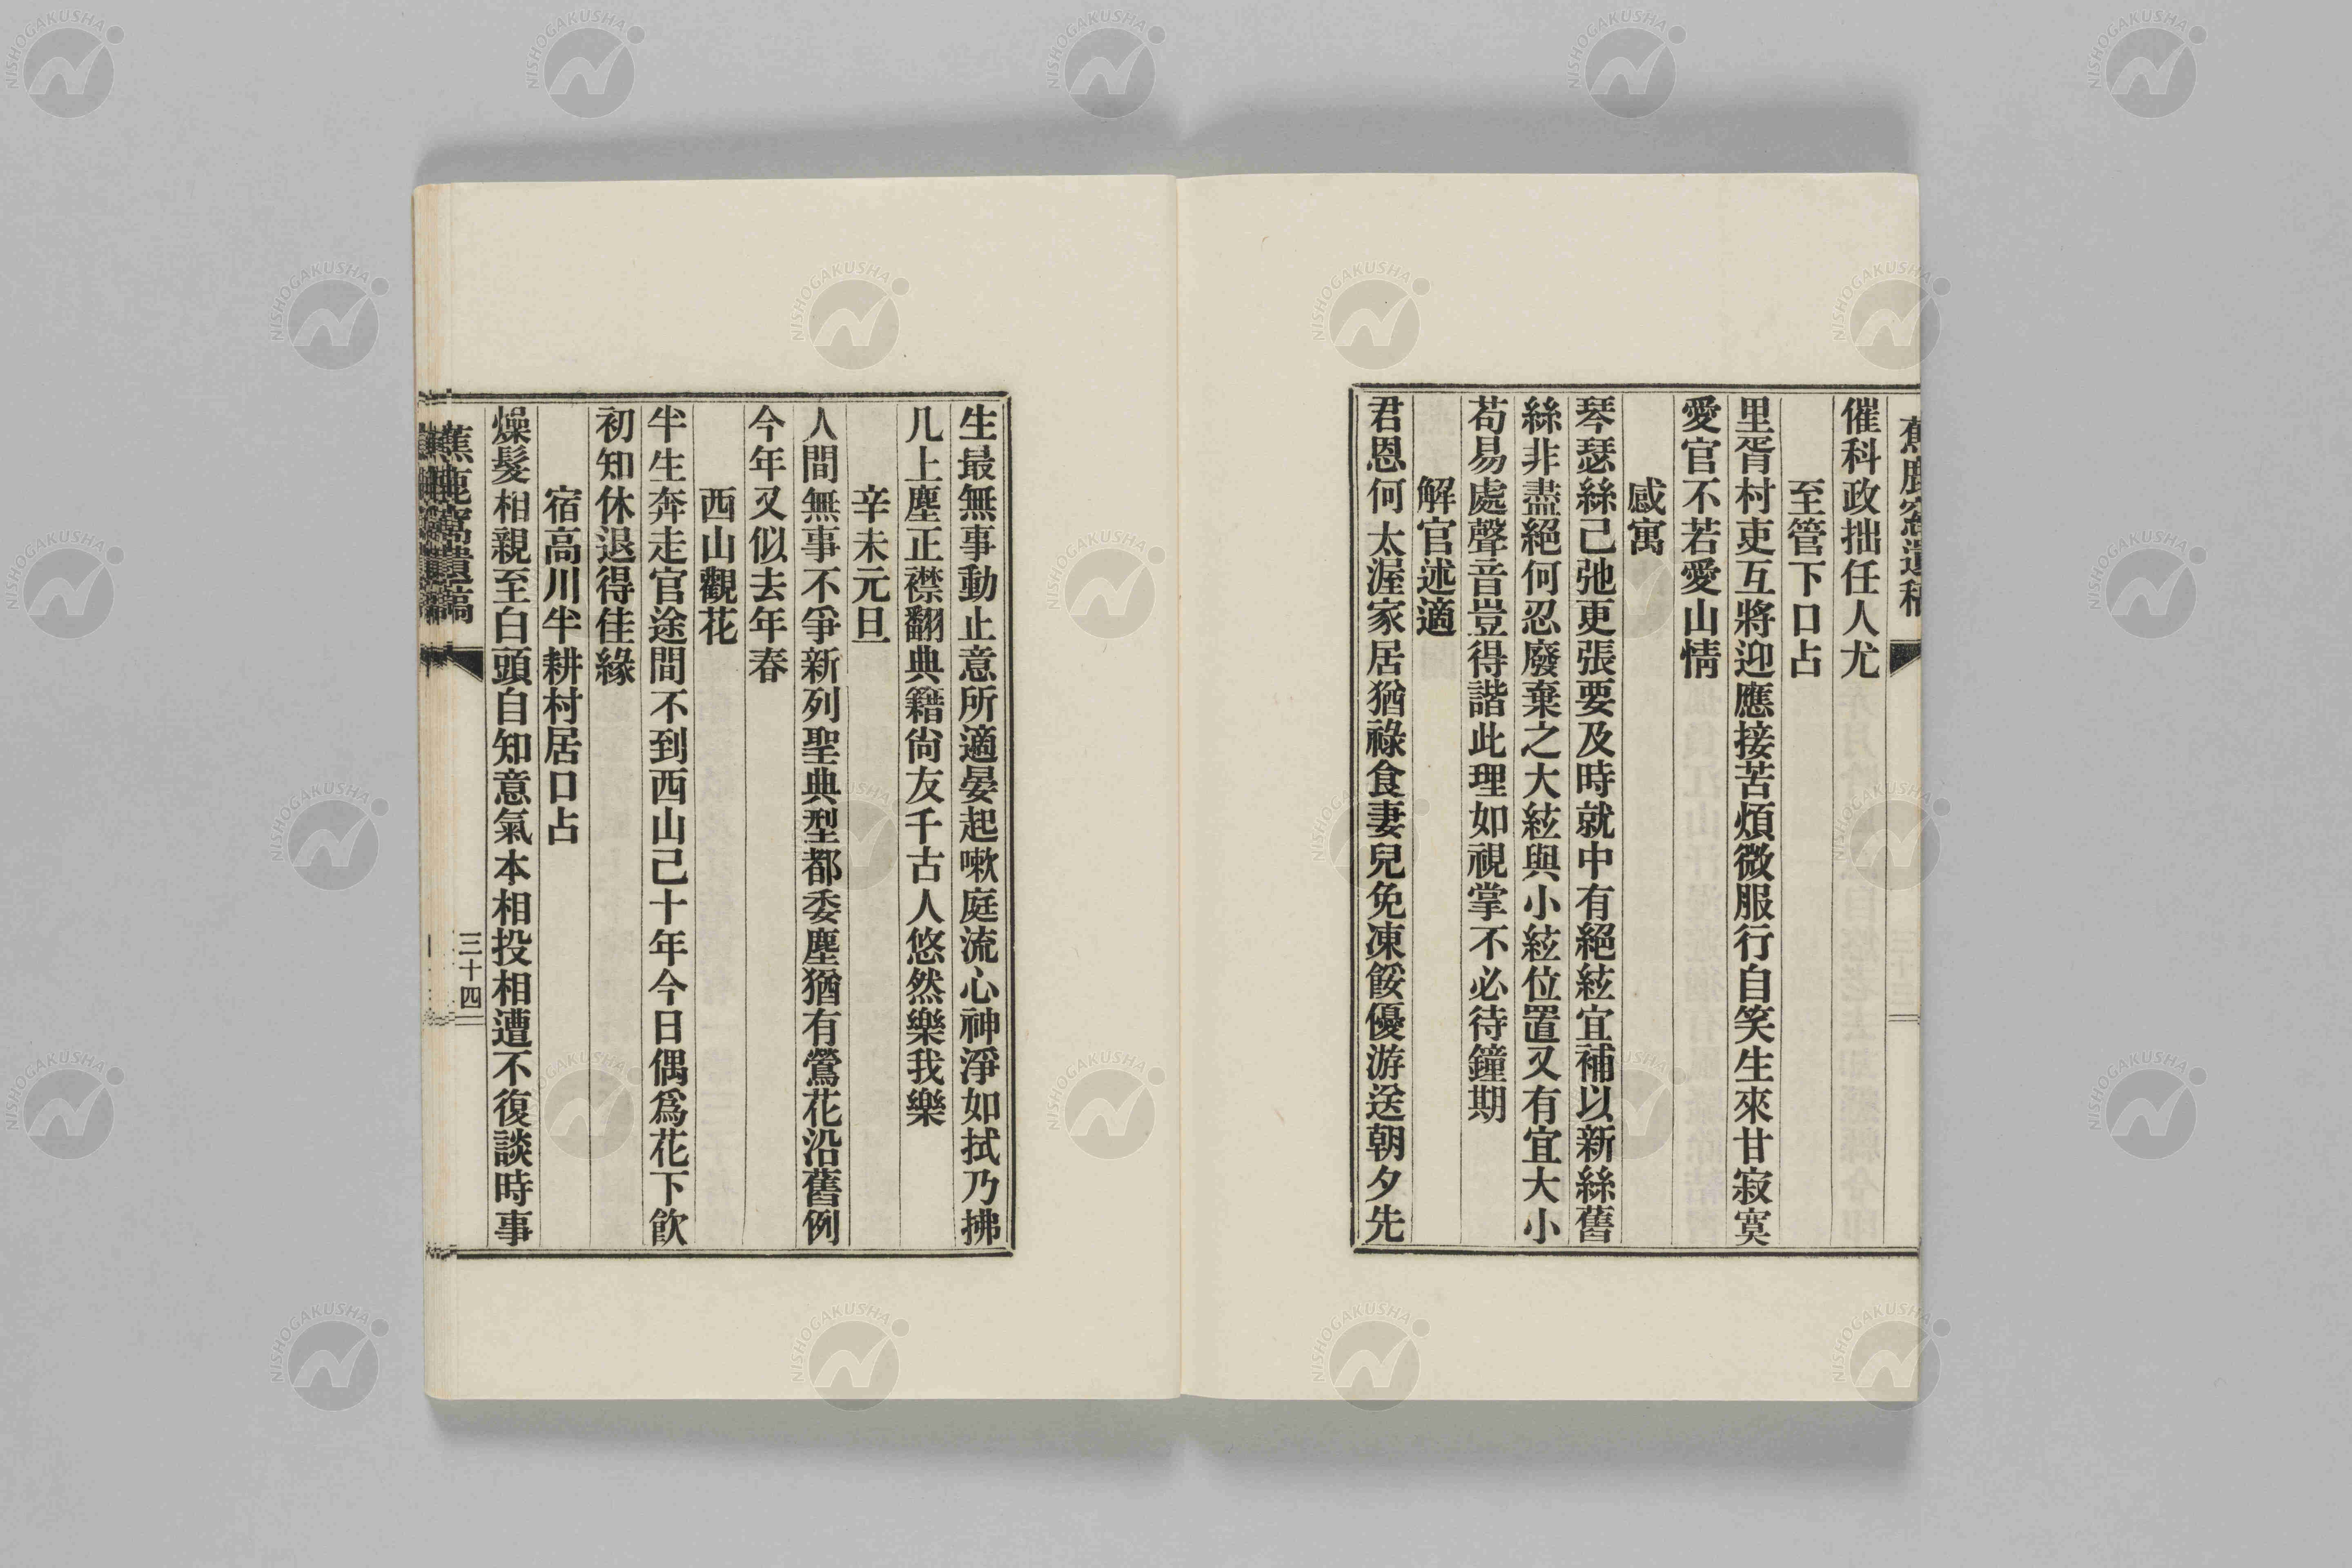 催科政拙任人尤
至管下口占
里胥村吏互將迎應接苦煩微服行自笑生來甘寂寞
愛官不若愛山情
感寓
琴瑟絲己弛更張要及時就中有絕絃宜補以新絲舊
絲非盡絕何忍廢棄之大絃與小絃位置又有宜大小
苟易處聲音豈得諧此理如視掌不必待鐘期
解官述適
君恩何太渥家居猶祿食妻兒免凍餒優游送朝夕先
生最無事動止意所適晏起嗽庭流心神淨如拭乃拂
几上塵正襟翻典籍尙友千古人悠然樂我樂
辛未元旦
人間無事不爭新列聖典型都委塵猶有鶯花沿舊例
今年又似去年春
西山觀花
半生奔走官途間不到西山己十年今日偶爲花下飮
初知休退得佳緣
宿高川半耕村居口占
燥髮相親至白頭自知意氣本相投相遭不復談時事
蕉鹿窩遺稿
三十四
NISHOGAKUSHA